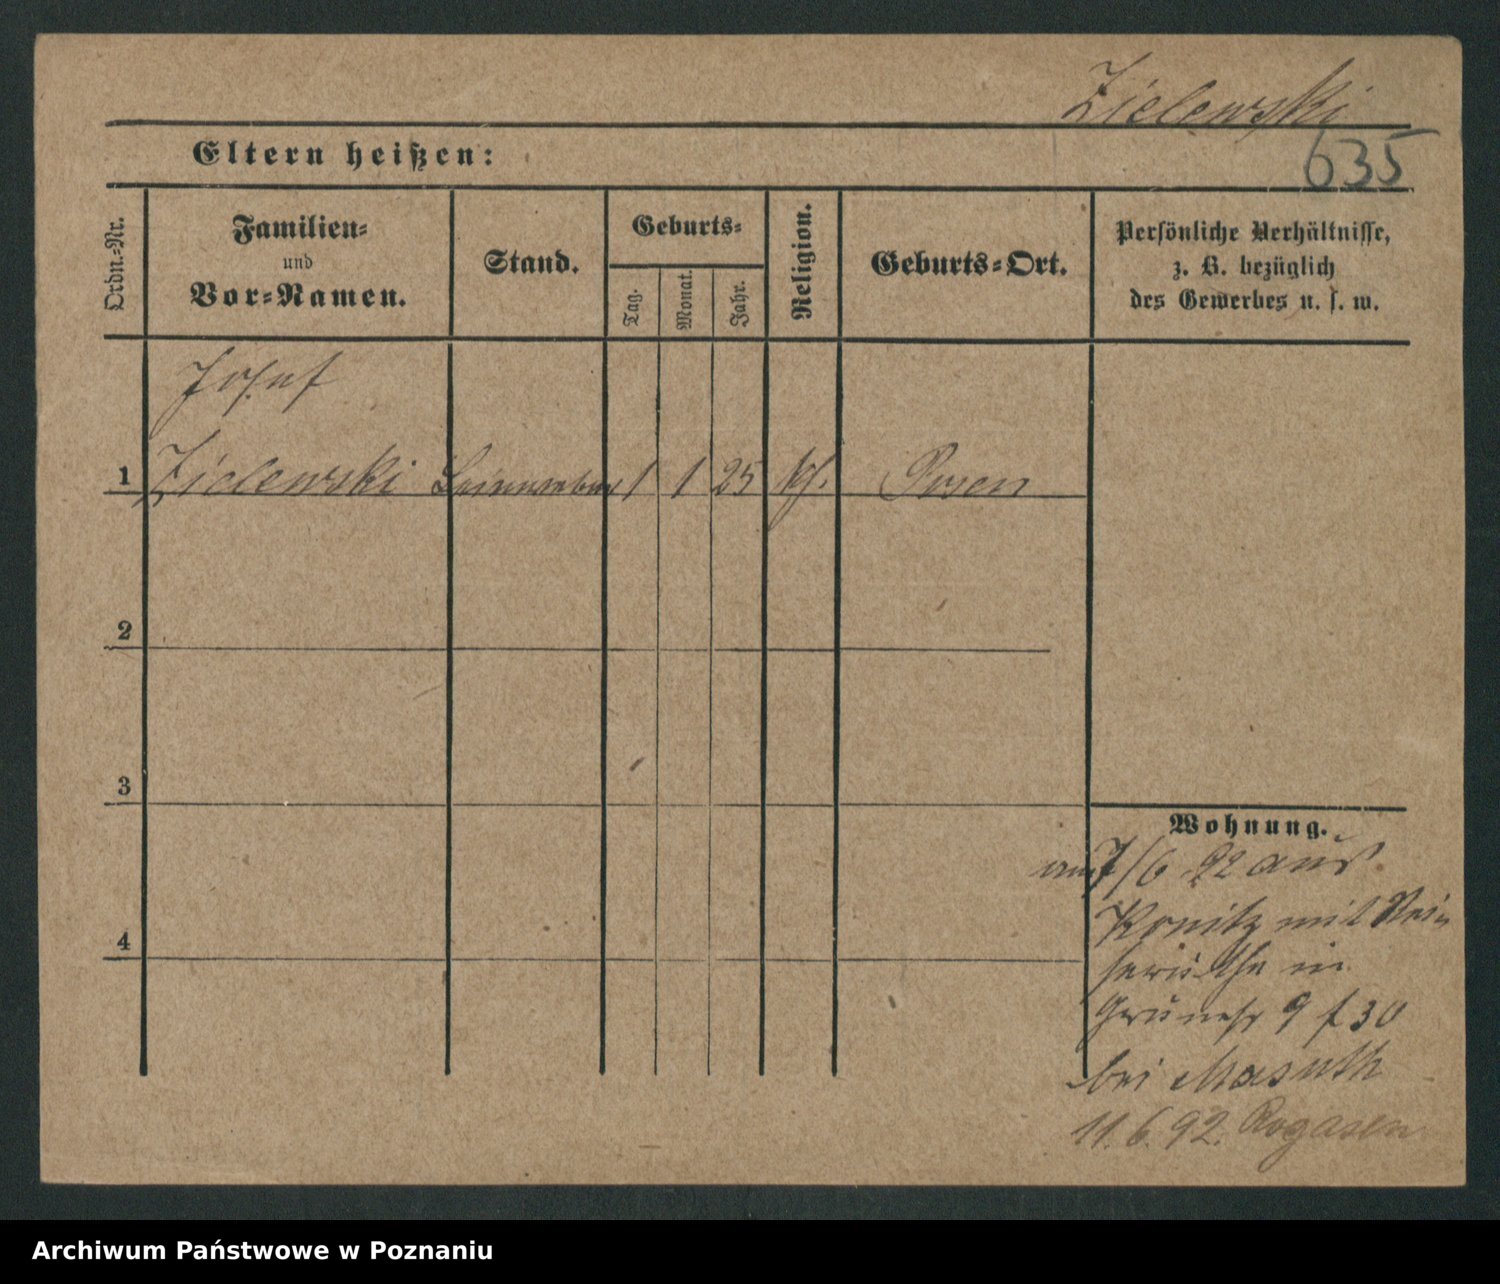 Zielewski
635
Eltern heißen:
Ordn.-Nr.
Familien-
und
Vor-Namen.
Stand.
Geburts-
Tag.
Monat.
Jahr.
Religion.
Geburts-Ort.
Persönliche Verhältnisse,
z. B. bezüglich
des Gewerbes u. s. w.
Josef
1 Zielewski Leineweber 1 1 25 kf. Posen
2
3
4
Wohnung.
am 7/6 92 aus
Konitz mit
in
9 f 30
bei Masuth
11.6.92. Rogasen
Archiwum Państwowe w Poznaniu